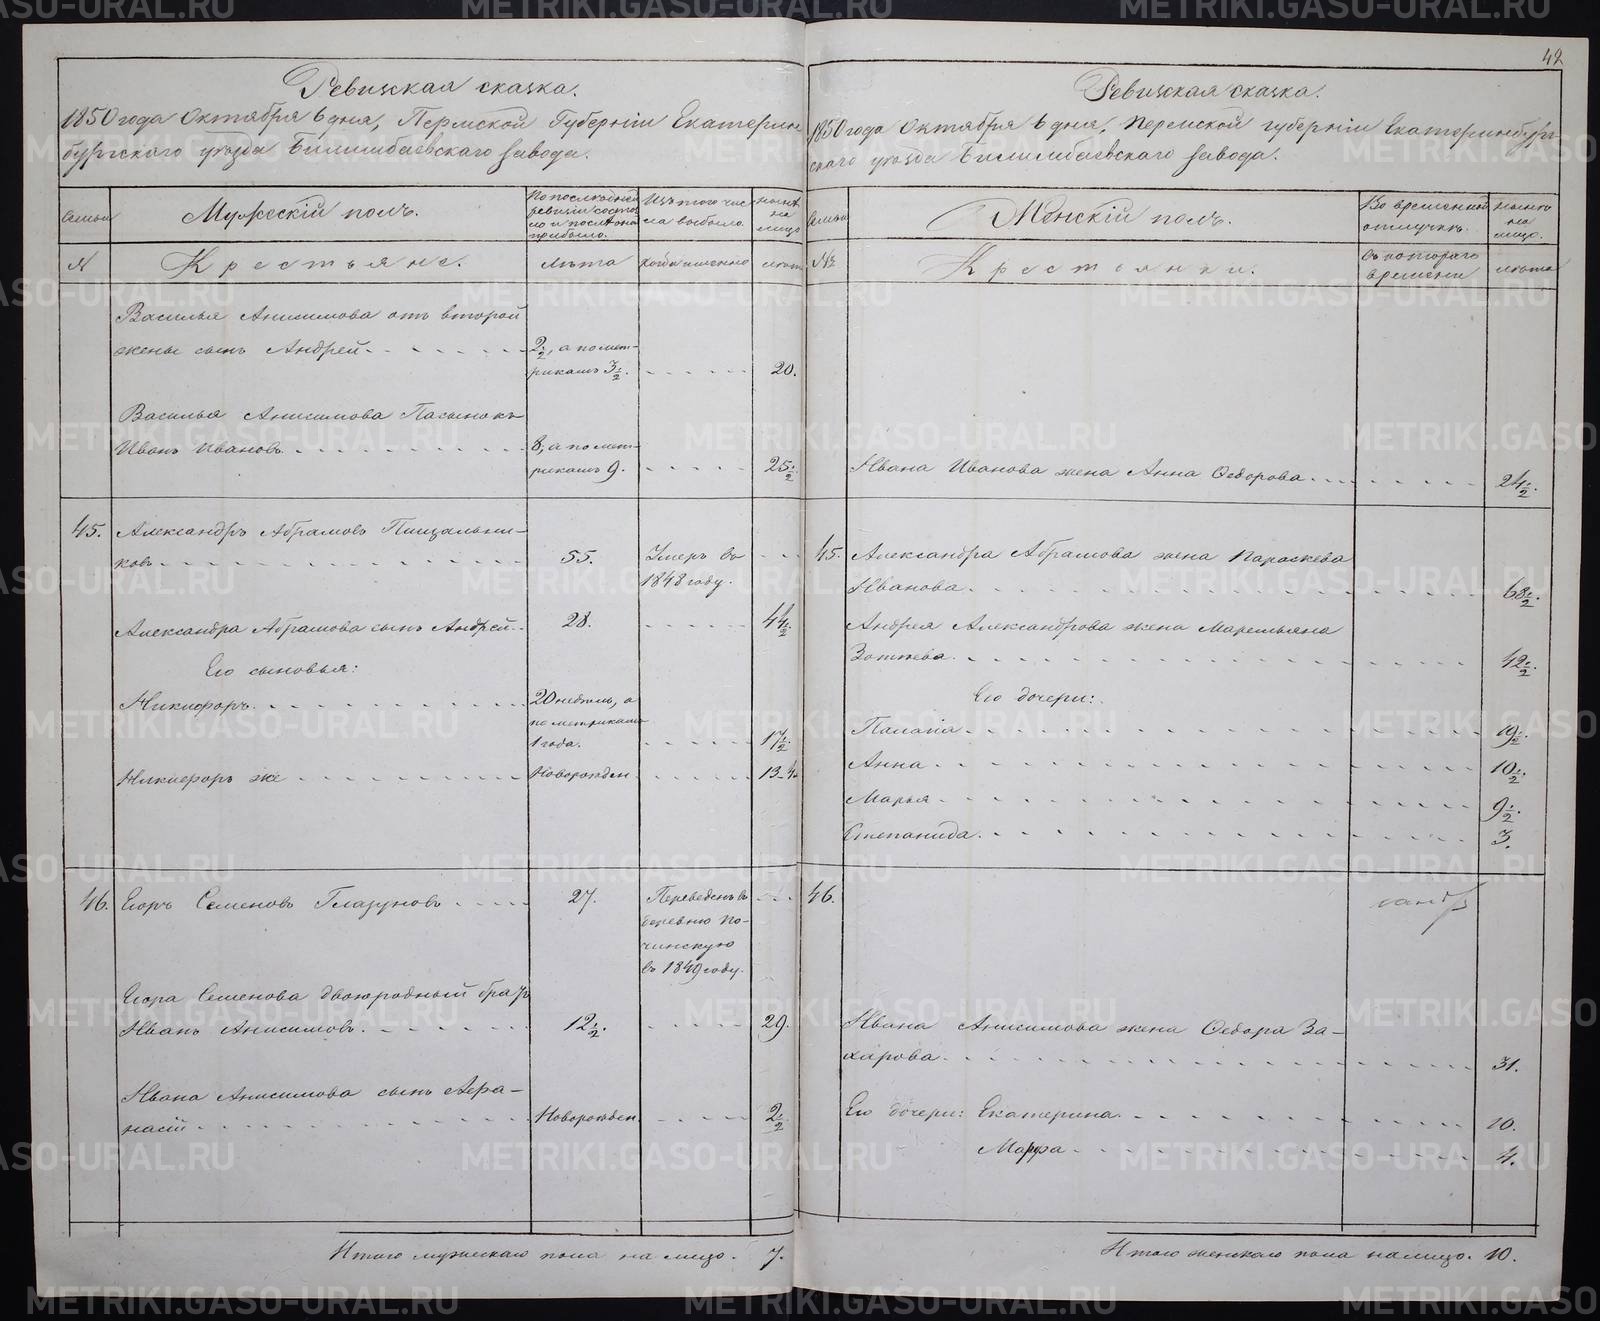 42
Ревизская сказка.
1850 года Октября 6 дня, Пермской Губерніи Екатерин
бургскаго уѣзда Билимбаевскаго завода.
Семьи
Мужескій полъ.
По послѣдней
ревизіи состо
яло и послѣ она
прибыло.
Изъ того чис
ла выбыло
нынѣ
на
лицо
№
Крестьяне.
Лѣта
когда именно
лѣта
Василья Анисимова отъ второй
жены сынъ Андрей
2 1/2, а по мет-
рикамъ 3 1/2.
20.
Василья Анисимова Пасынокъ
Иванъ Ивановъ
8, а по мет-
рикамъ 9.
25 1/2
45. Александръ Абрамовъ Пищальни-
ковъ
55.
Умеръ въ
1848 году.
Александра Абрамова сынъ Андрей
28.
44 1/2.
Его сыновья:
Никифоръ
20 недѣль, а
по метрикамъ
1 года.
17 1/2.
Никифоръ же
Новорожден.
13-4.
46. Егоръ Семеновъ Глазуновъ
27.
Переведенъ въ
деревню По-
чинскую
въ 1849 году.
Егора Семенова двоюродный братъ
Иванъ Анисимовъ.
12 1/2.
29.
Ивана Анисимова сынъ Афа-
насій
Новорожден.
2 1/2
Итого мужескаго пола на лицо. 7.
Ревизская сказка.
1850 года Октября 6 дня, Пермской губерніи Екатеринбург-
скаго уѣзда Билимбаевскаго завода.
Семьи
Женскій полъ.
Во временной
отлучкѣ.
нынѣ
на
лицо.
№
Крестьянки.
съ котораго
времени
лѣта
Ивана Иванова жена Анна Ѳедорова
24 1/2.
45. Александра Абрамова жена Параскева
Иванова
68 1/2.
Андрея Александрова жена Маремьяна
Зотѣева
42 1/2.
Его дочери:
Палагія
19 1/2.
Анна
10 1/2.
Марья
9 1/2.
Степанида
3.
46.
Ивана Анисимова жена Ѳедора За-
харова
31.
Его дочери: Екатерина
10.
Марфа
4.
Итого женскаго пола на лицо. 10.
METRIKI.GASO-URAL.RU